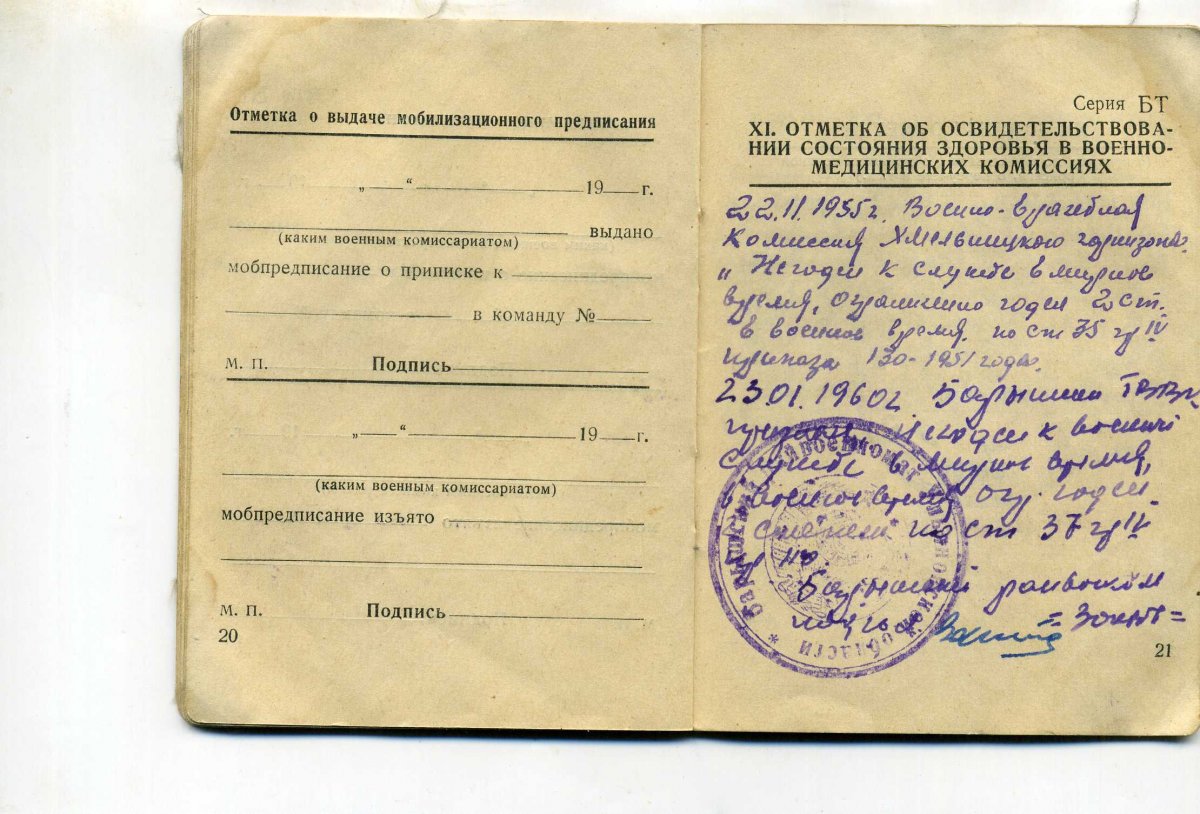 Отметка о выдаче мобилизационного предписания
„ — “ 19 г.
выдано
(каким военным комиссариатом)
мобпредписание о приписке к
в команду №
М. П. Подпись
„ — “ 19 г.
(каким военным комиссариатом)
мобпредписание изъято
М. П. Подпись
20
Серия БТ
XI. ОТМЕТКА ОБ ОСВИДЕТЕЛЬСТВОВА-
НИИ СОСТОЯНИЯ ЗДОРОВЬЯ В ВОЕННО-
МЕДИЦИНСКИХ КОМИССИЯХ
22.11.1955г. Военно-врачебная
комиссия Хмельницкого гарнизона.
„Негоден к службе в мирное
время, ограниченно годен 2 ст.
в военное время. по ст 35 гр IV
приказа 130-1951 года.
23.01.1960г Барышским
Негоден к военной
службе в мирное время,
в военное время огр. годен
степени по ст 37 гр IV
Барышский райвоенком
Барышский райвоенкомат Ульяновской области
21